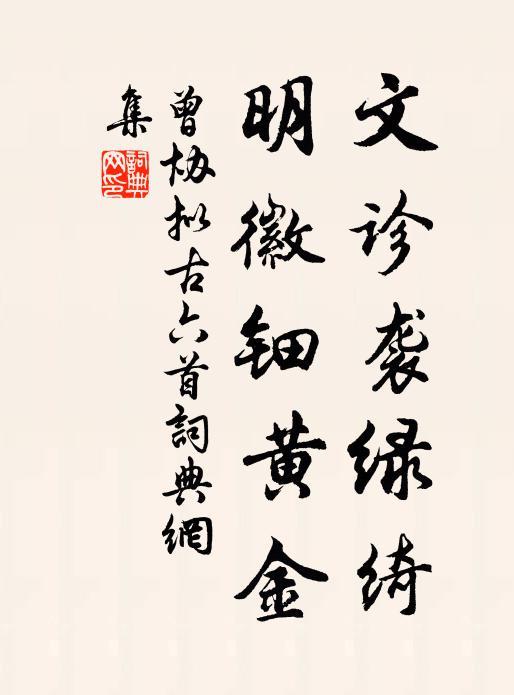 文诊袭绿绮
明徽钿黄金
曾协拟古六首詞典網
集
詞典网印